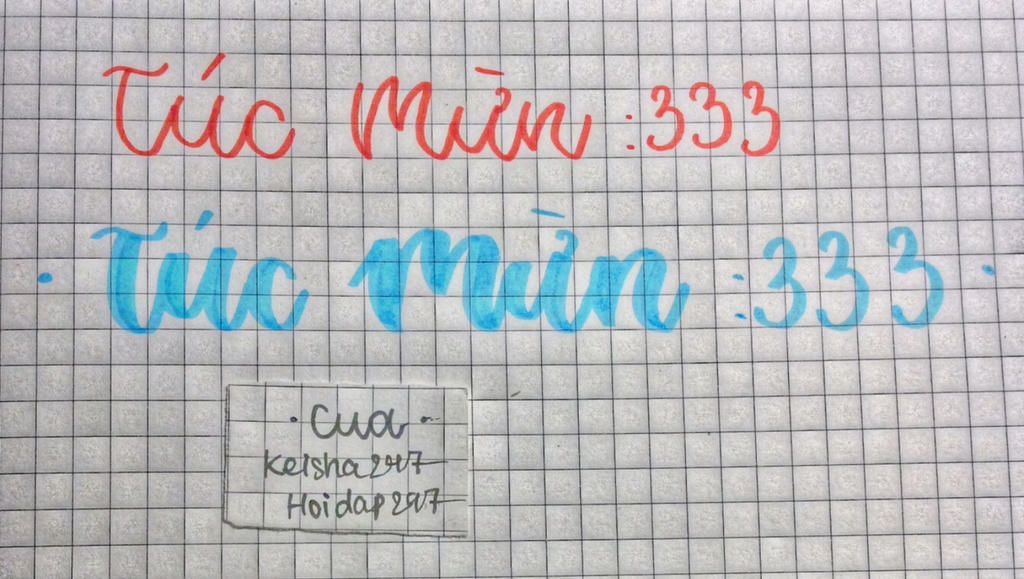 Túc Mừn :333
Túc Mừn :333
Cua
Keisha247
Hoidap247